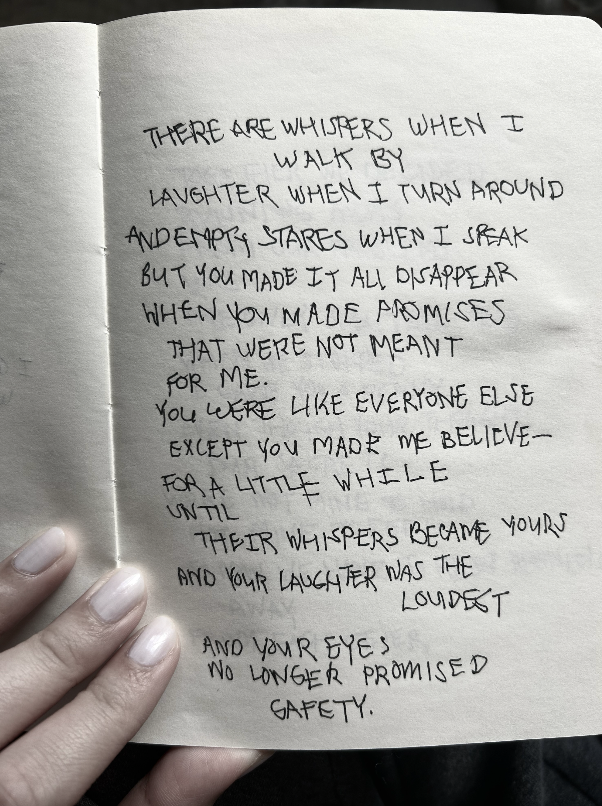 THERE ARE WHISPERS WHEN I
WALK BY
LAUGHTER WHEN I TURN AROUND
AND EMPTY STARES WHEN I SPEAK
BUT YOU MADE IT ALL DISAPPEAR
WHEN YOU MADE PROMISES
THAT WERE NOT MEANT
FOR ME.
YOU WERE LIKE EVERYONE ELSE
EXCEPT YOU MADE ME BELIEVE—
FOR A LITTLE WHILE
UNTIL
THEIR WHISPERS BECAME YOURS
AND YOUR LAUGHTER WAS THE
LOUDEST
AND YOUR EYES
NO LONGER PROMISED
SAFETY.